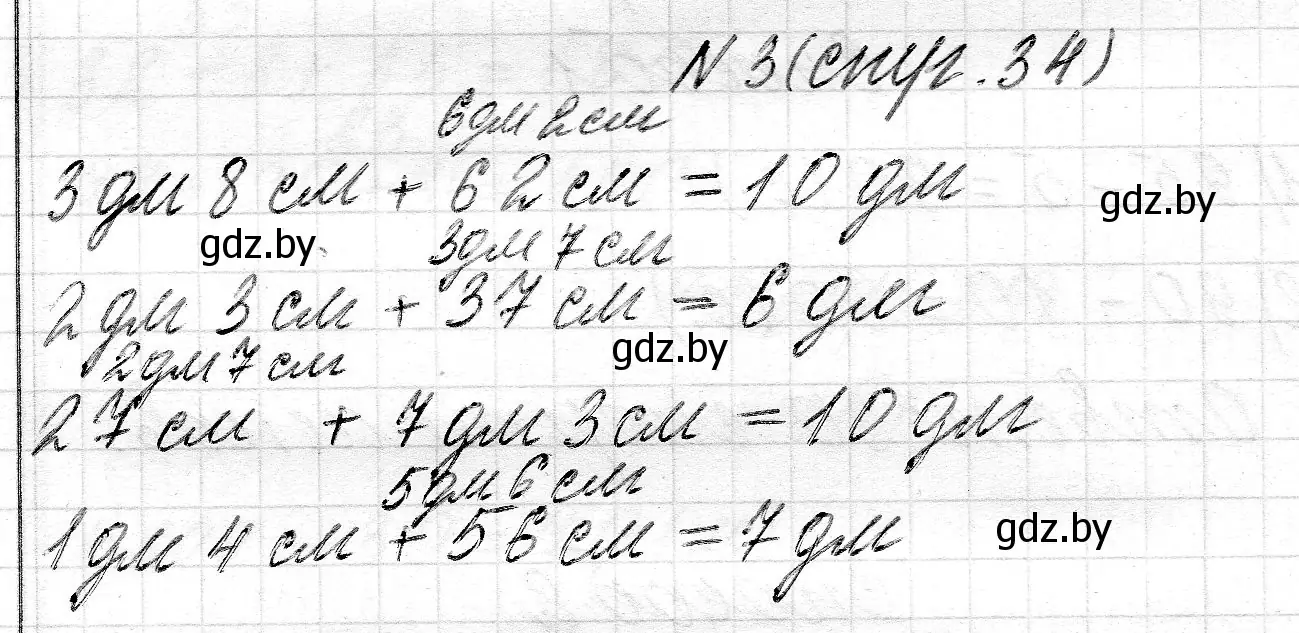 N 3 (стр. 34)
6дм 2см
3 дм 8 см + 62 см = 10 дм
gdz.by
gdz.by
3дм 7 см
2 дм 3 см + 37 см = 6 дм
gdz.by
2дм 7 см
27 см + 7 дм 3 см = 10 дм
5дм 6 см
1 дм 4 см + 56 см = 7 дм
gdz.by